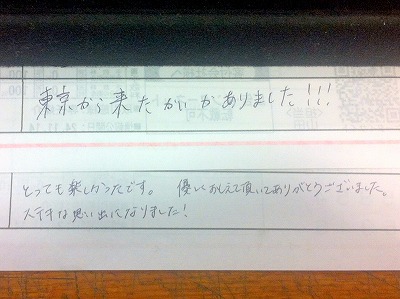 東京から来たかいがありました!!!
とっても楽しかったです。 優しくおしえて頂いてありがとうございました。
ステキな思い出になりました!